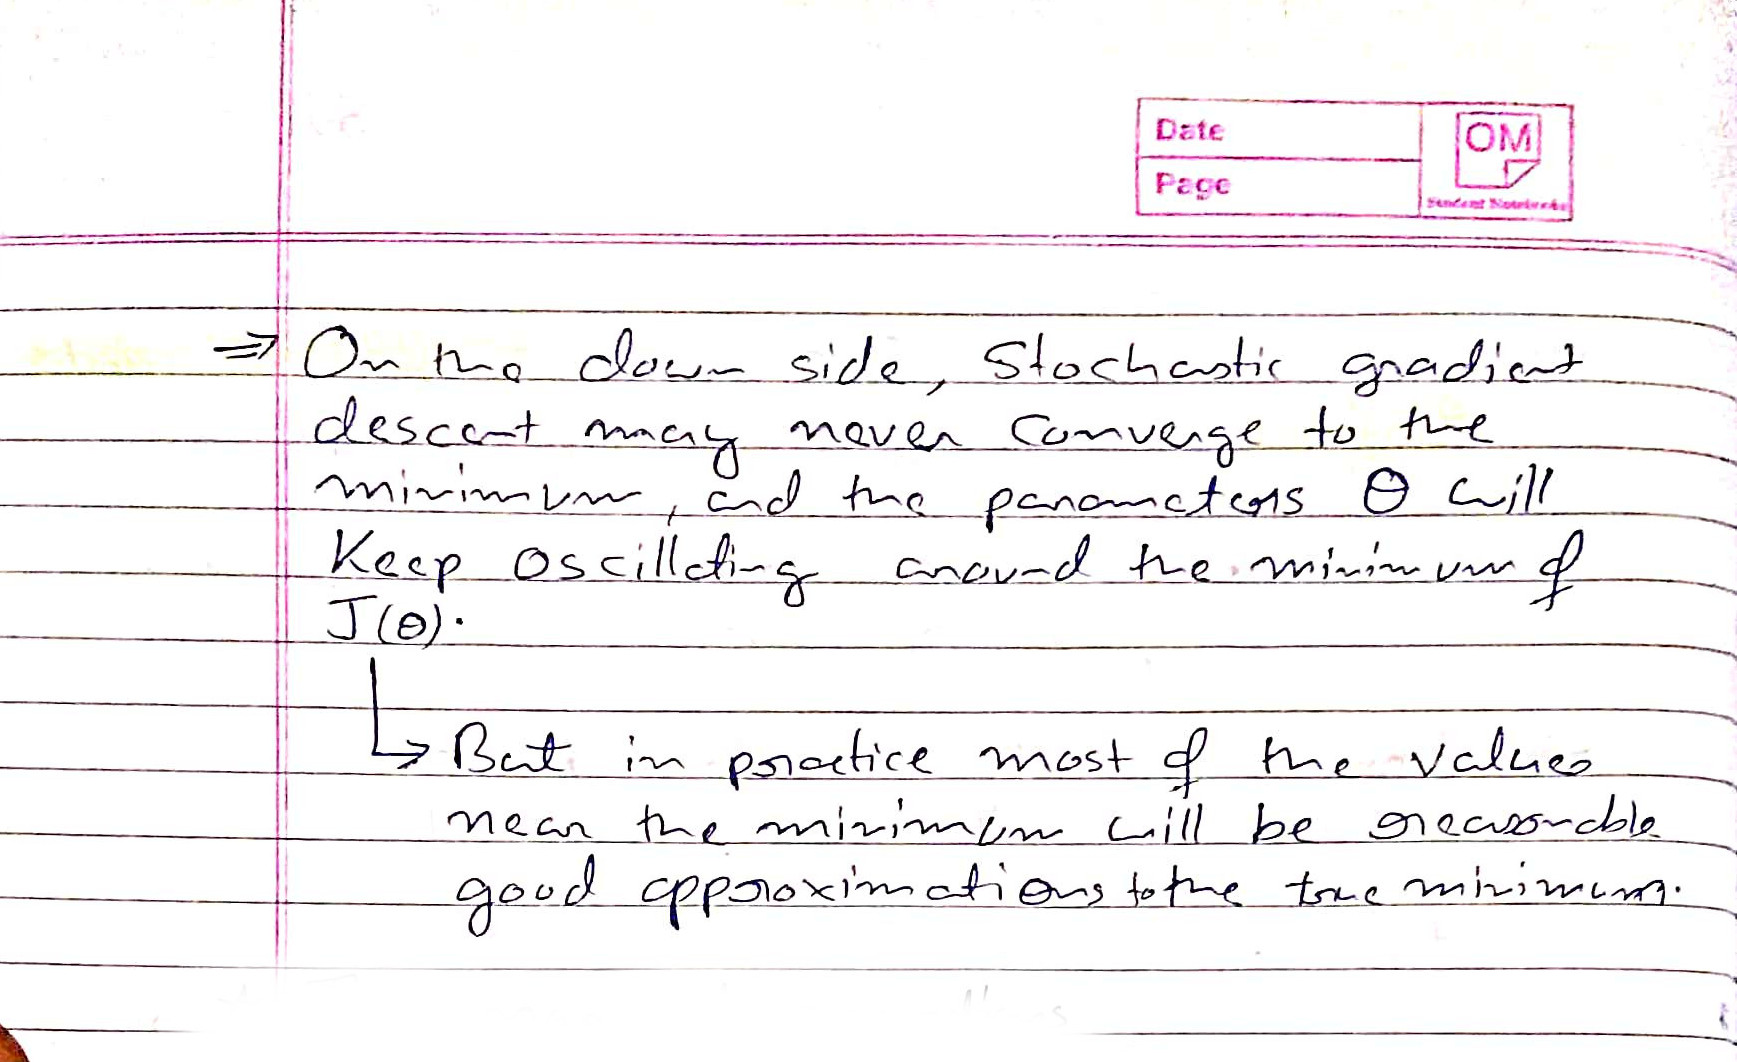 Date
OM
Page
Student Notebooks
⇒ On the down side, Stochastic gradient
descent may never converge to the
minimum, and the parameters θ will
Keep oscillating around the minimum of
J(θ).
↳ But in practice most of the values
near the minimum will be reasonable
good approximations to the true minimum.